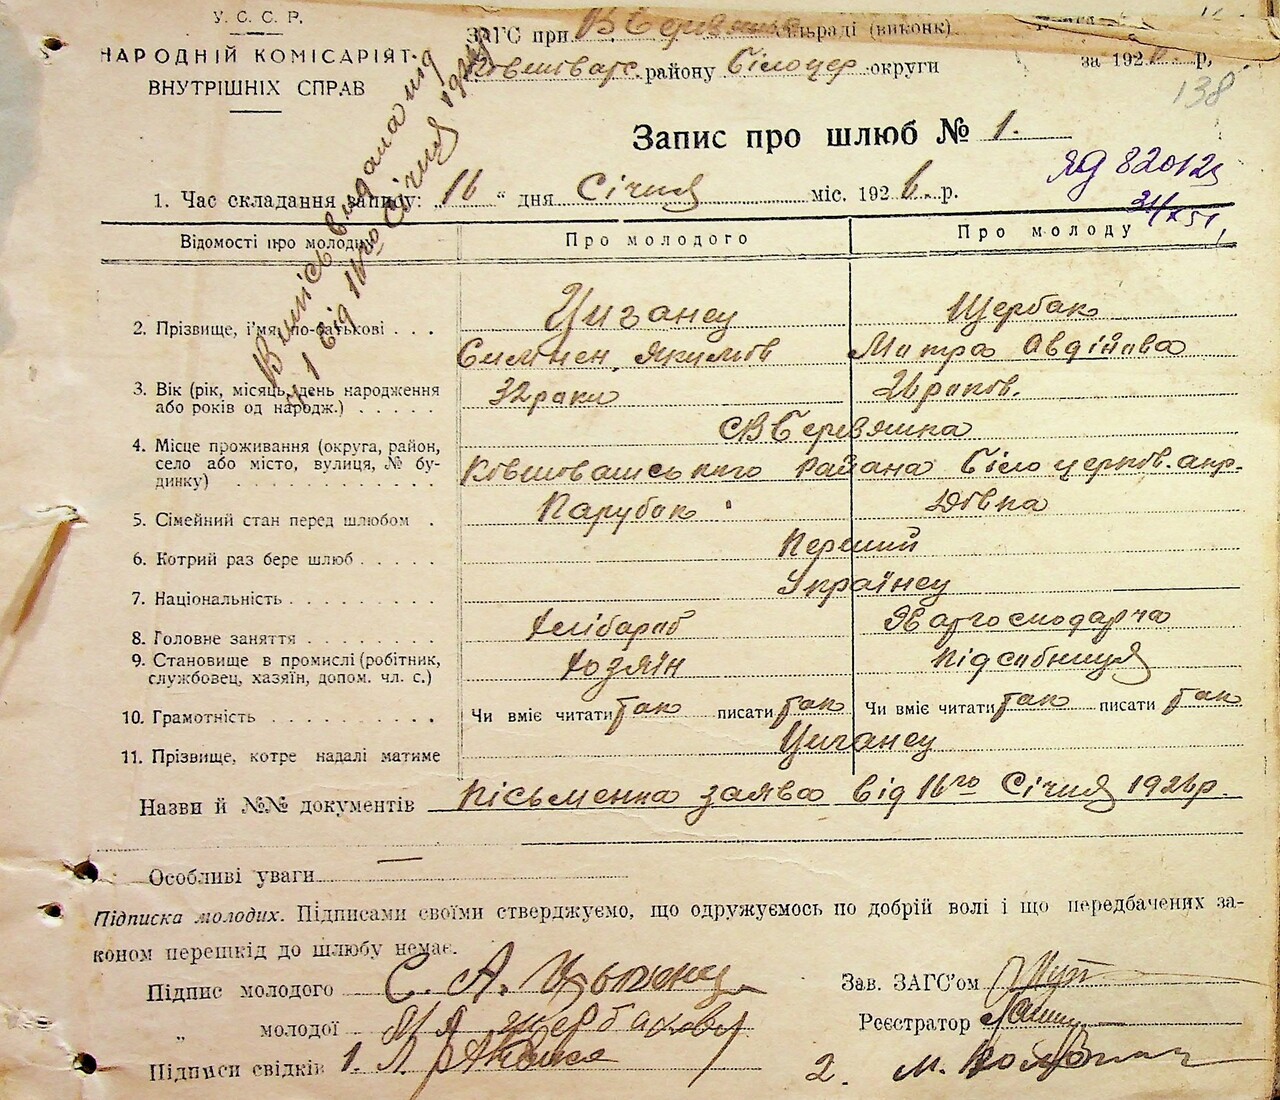 У. С. С. Р.
НАРОДНІЙ КОМІСАРІЯТ
ВНУТРІШНІХ СПРАВ
ЗАГС при В Березянка сільраді (виконк)
районy Білоцер округи
за 1926 р,
138
Запис про шлюб № 1.
ЯД 820125
1. Час складання запису: „16 “ дня Січня міс. 1926. р.
Випись видана під
№ 1 від 16го Січня 1926р
Відомості про молодих
Про молодого
Про молоду
2. Прізвище, і'мя, по-батькові . . .
Циганец
Щербак
Якимов
Мотра Авдіїева
3. Вік (рік, місяць, день народження
або років од народж.) . . . . .
32 роки
26 років.
4. Місце проживання (округа, район,
село або місто, вулиця, № бу-
динку) . . . . . . . . . . .
В Березянка
района Білоцерков. окр.
5. Сімейний стан перед шлюбом .
Парубок
Дівка
6. Котрий раз бере шлюб . . . . .
Перший
7. Національність . . . . . . . . .
Українец
8. Головне заняття . . . . . . .
Хлібароб
9. Становище в промислі (робітник,
службовец, хазяїн, допом. чл. с.)
Хозяїн
10. Грамотність . . . . . . . . . .
Чи вміє читати так писати так
Чи вміє читати так писати так
11. Прізвище, котре надалі матиме
Циганец
Назви й №№ документів Пісьменна заява від 16го Січня 1926р.
Особливі уваги —
Підписка молодих. Підписами своїми стверджуємо, що одружуємось по добрій волі і що передбачених за-
коном перешкід до шлюбу немає.
Підпис молодого С. А.
Зав. ЗАГС'ом
„ молодої
Реєстратор
Підписи свідків 1. Л.
2. М.